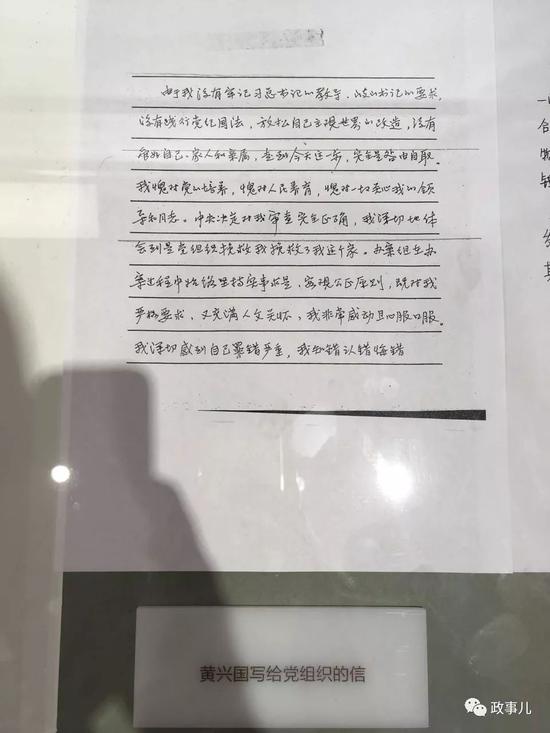 由于我没有牢记习总书记的教导、岐山书记的要求,
没有践行党纪国法，放松自己主观世界的改造，没有
管好自己、家人和亲属，走到今天这一步，完全是咎由自取。
我愧对党的培养，愧对人民养育，愧对一切关心我的领
导和同志。中央决定对我审查完全正确，我深切地体
会到是党组织挽救我挽救了我这个家。办案组在办
案过程中始终坚持实事求是、客观公正原则，既对我
严格要求，又充满人文关怀，我非常感动且心服口服。
我深切感到自己罪错严重，我知错认错悔错
黄兴国写给党组织的信
政事儿